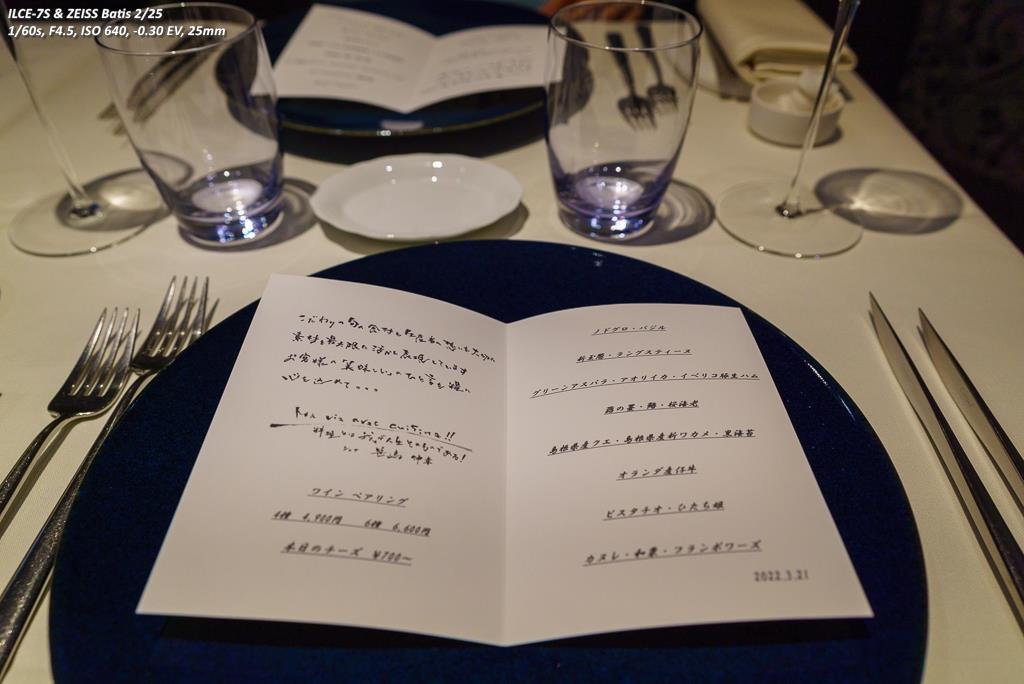 ILCE-7S & ZEISS Batis 2/25
1/60s, F4.5, ISO 640, -0.30 EV, 25mm
こだわりの旬の食材と生産者の想いを大切に
素材を最大限に活かし表現しています
お客様の「美味しい」のひと言を糧に
心を込めて。。。
avec cuisine!!
ワイン ペアリング
4種 4,900円 6種 6,600円
本日のチーズ ¥700～
ノドグロ・バジル
新玉葱・ラングスティーヌ
グリーンアスパラ・アオリイカ・イベリコ豚生ハム
蕗の薹・鰆・桜海老
島根県産クエ・島根県産新ワカメ・黒海苔
オランダ産仔牛
ピスタチオ・ひたち姫
カヌレ・和栗・フランボワーズ
2022.3.21